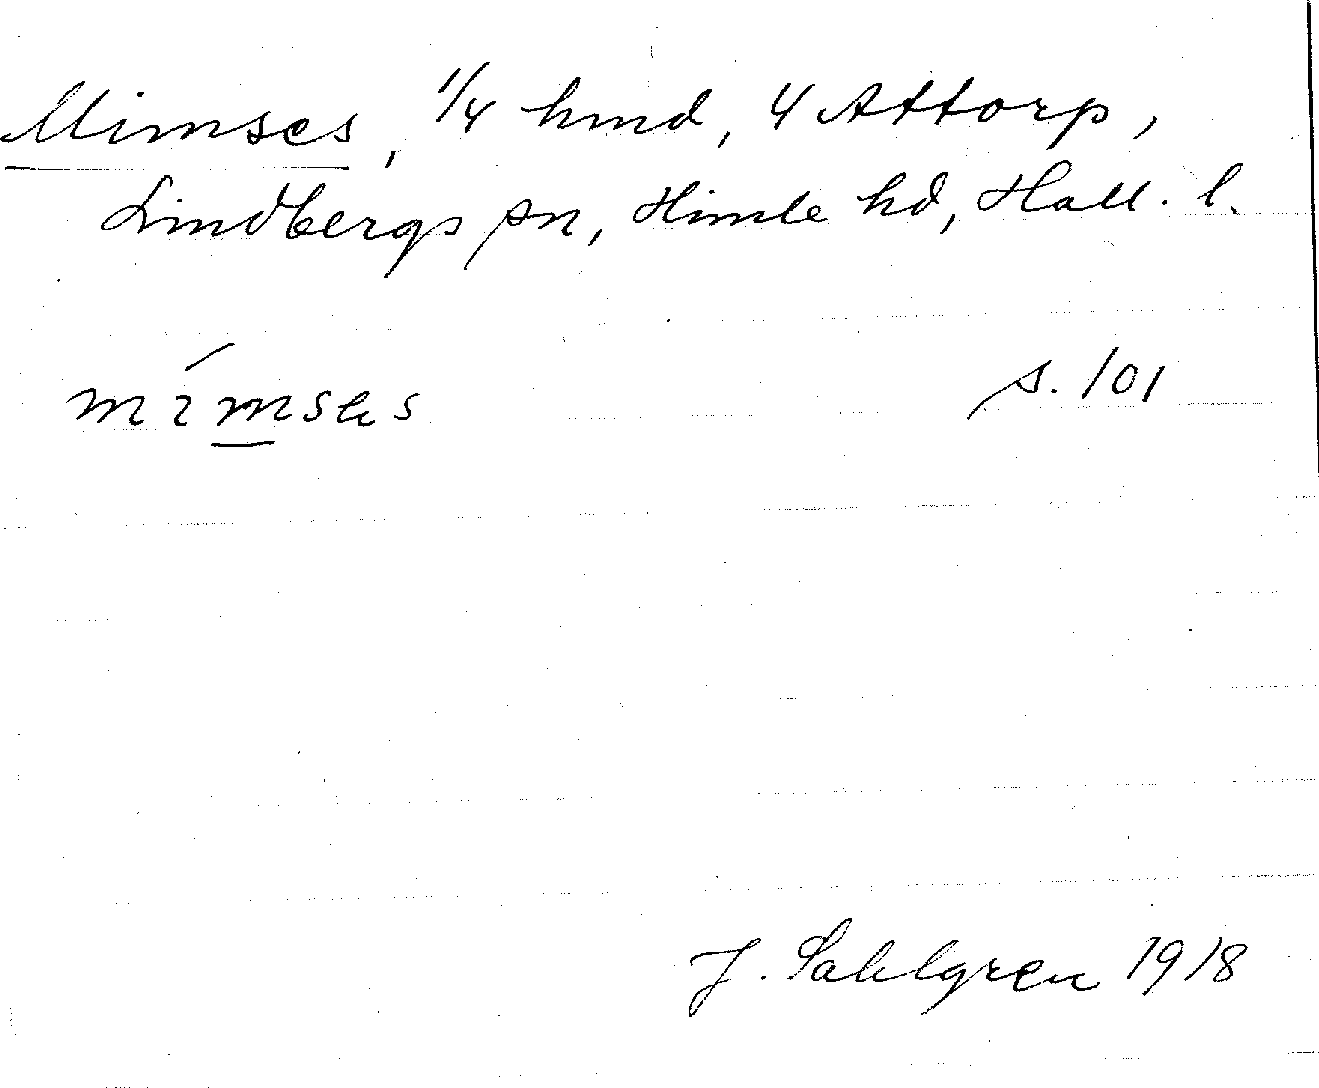 Mimses, 1/4 hmd, 4 Attorp,
Lindbergs sn, Himle hd, Hall. l.
mímsəs s. 101
J. Sahlgren 1918